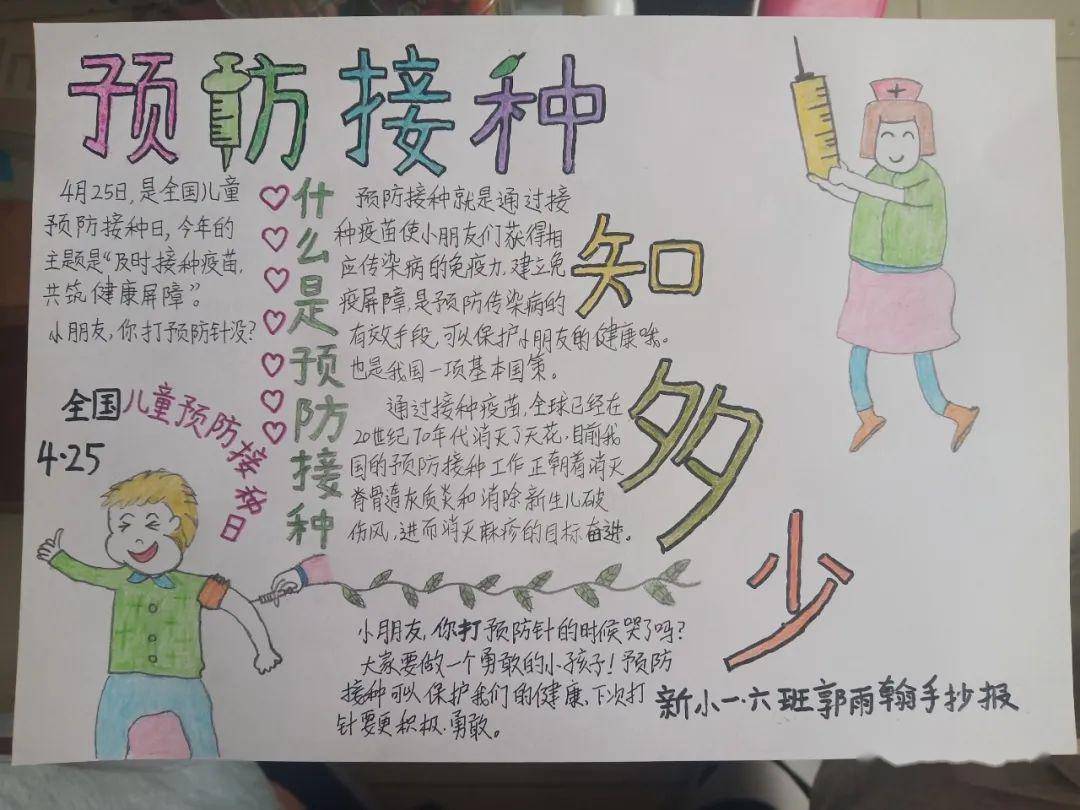 预防接种
知多少
4月25日,是全国儿童
预防接种日,今年的
主题是“及时接种疫苗,
共筑健康屏障”。
小朋友,你打预防针没?
什么是预防接种
预防接种就是通过接
种疫苗使小朋友们获得相
应传染病的免疫力,建立免
疫屏障,是预防传染病的
有效手段,可以保护小朋友的健康哦。
也是我国一项基本国策。
通过接种疫苗,全球已经在
20世纪70年代消灭了天花,目前我
国的预防接种工作正朝着消灭
脊骨遗灰质炎和消除新生儿破
伤风,进而消灭麻疹的目标奋进。
全国儿童预防接种日
4·25
小朋友,你打预防针的时候哭了吗?
大家要做一个勇敢的小孩子!预防
接种可以保护我们的健康,下次打
针要更积极、勇敢。
新小一·六班郭雨翰手抄报